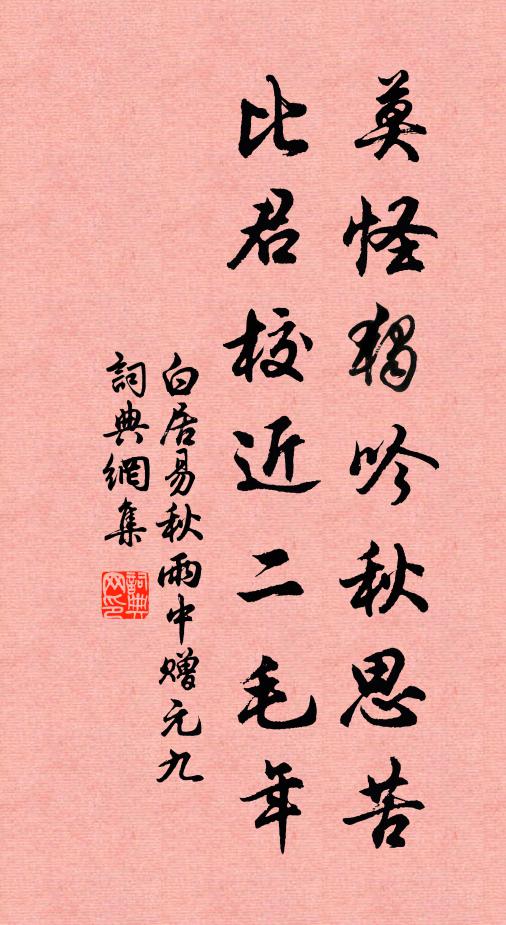 莫怪獨吟秋思苦
比君校近二毛年
白居易秋雨中赠元九
詞典網集
詞典网印